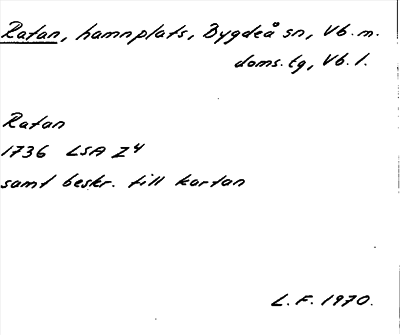 Ratan, hamnplats, Bygdeå sn, Vb. m.
doms.tg, Vb. l.
Ratan
1736 LSA Z4
samt beskr. till kartan
L.F. 1970.